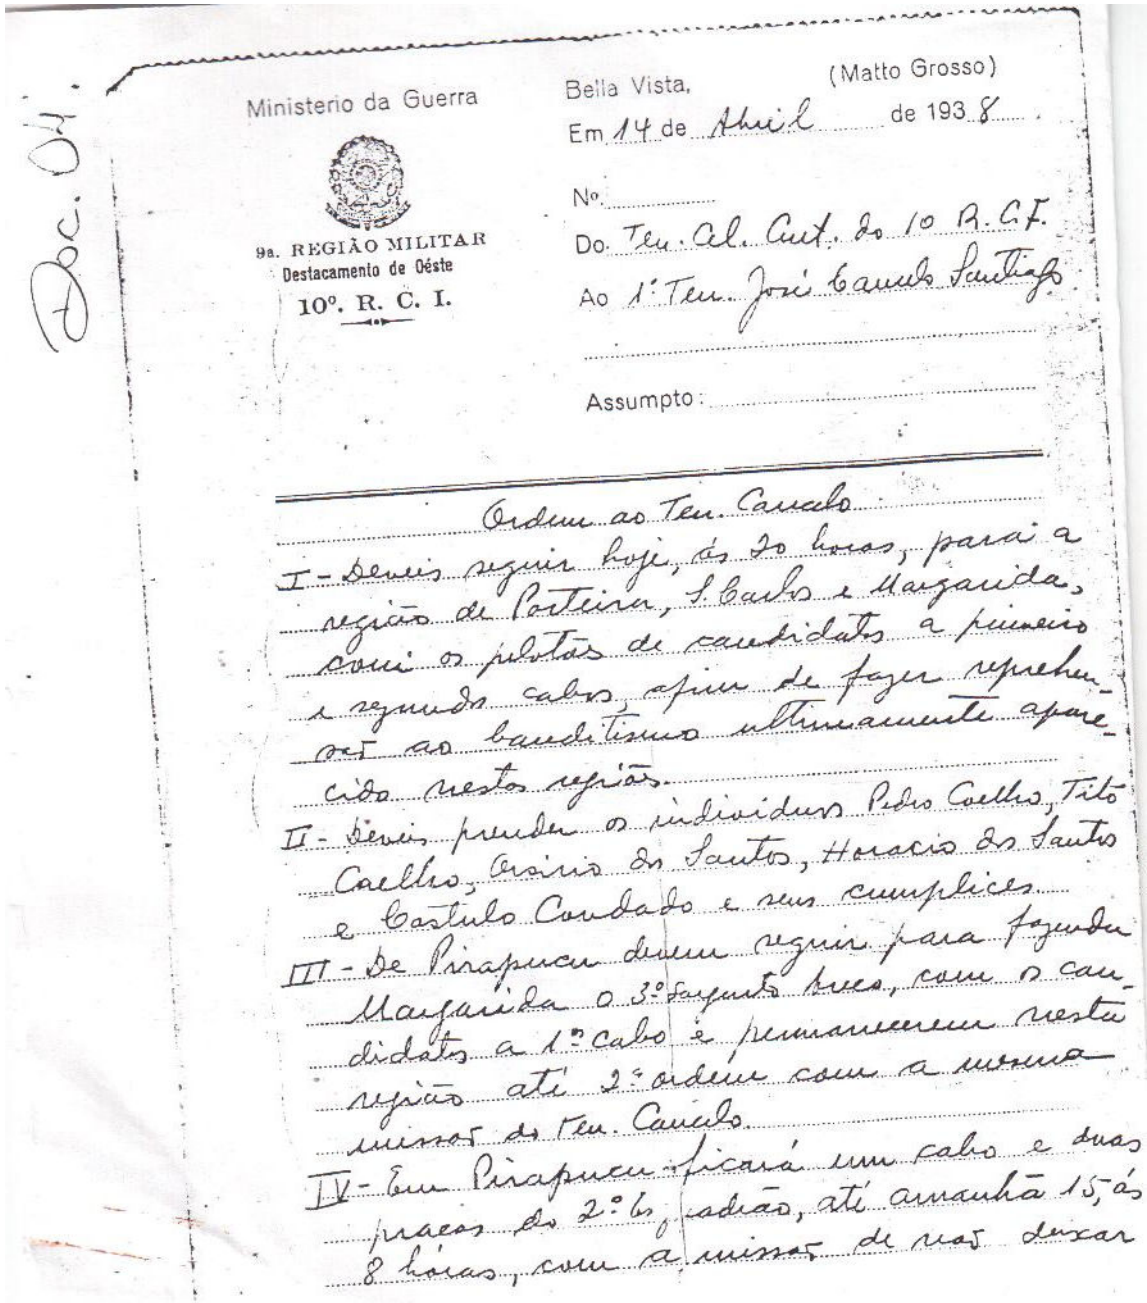 Doc. 04.
Ministerio da Guerra
9a. REGIÃO MILITAR
Destacamento de Oéste
10º. R. C. I.
Bella Vista, (Matto Grosso)
Em 14 de Abril de 1938.
Nº
Do Ten. Cel. Cmt. do 10 R. C. I.
Ao 1º Ten. José Camelo Santiago
Assumpto:
Ordem ao Ten. Camelo
I - Deveis seguir hoje, ás 20 horas, para a
região de Porteira, S. Carlos e Margarida,
com os pelotões de candidatos a primeiro
e segundo cabos, afim de fazer reprehen-
são ao banditismo ultimamente appare-
cido nestas regiões.
II - Deveis prender os individuos Pedro Coelho, Tito
Coelho, Osirio dos Santos, Horacio dos Santos
e Castulo Condado e seus cumplices.
III - De Pirapucu devem seguir para fazenda
Margarida o 3º Sargento com o can-
didatos a 1º cabo e permanecerem nesta
região até 2ª ordem com a mesma
missão do Ten. Camelo.
IV - Em Pirapucu ficará um cabo e duas
praças do 2º Esquadrão, até amanhã 15, ás
8 horas, com a missão de não deixar